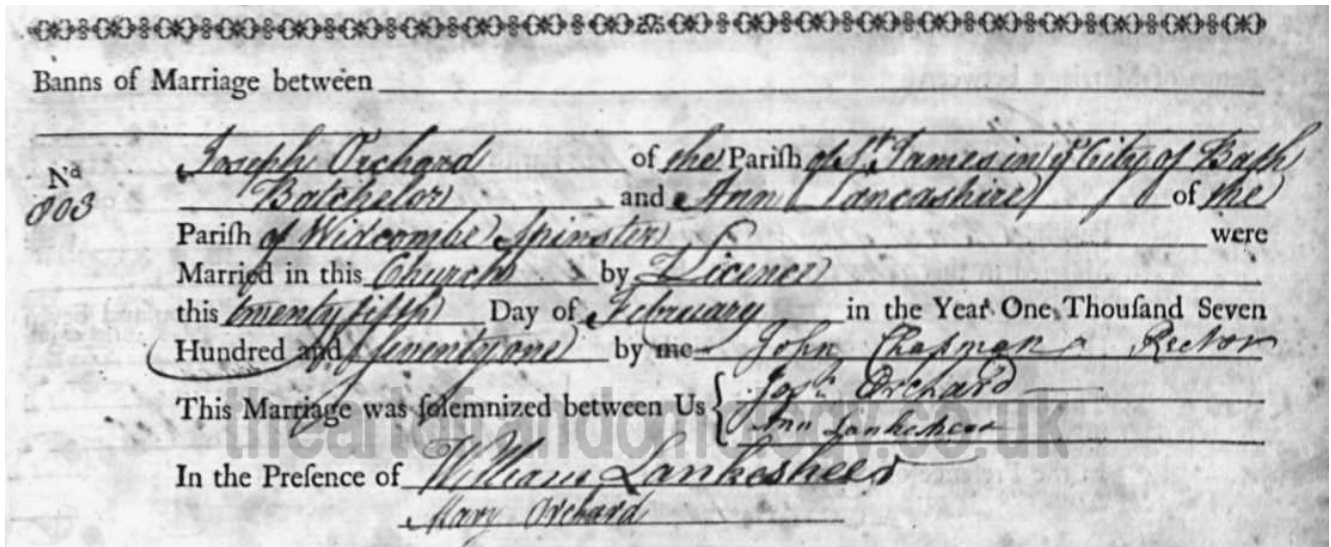 Banns of Marriage between
Joseph Orchard of the Pariſh of St. James in ye City of Bath
Nº 803
Batchelor and Ann Lancashire of the
Pariſh of Widcombe Spinster were
Married in this Church by Licence
this twenty fifth Day of February in the Year One Thouſand Seven
Hundred and Seventy one by me John Chapman Rector
This Marriage was ſolemnized between Us { Josh. Orchard
Ann Lankesheer
theartofrandomology.co.uk
In the Preſence of William Lankesheer
Mary Orchard